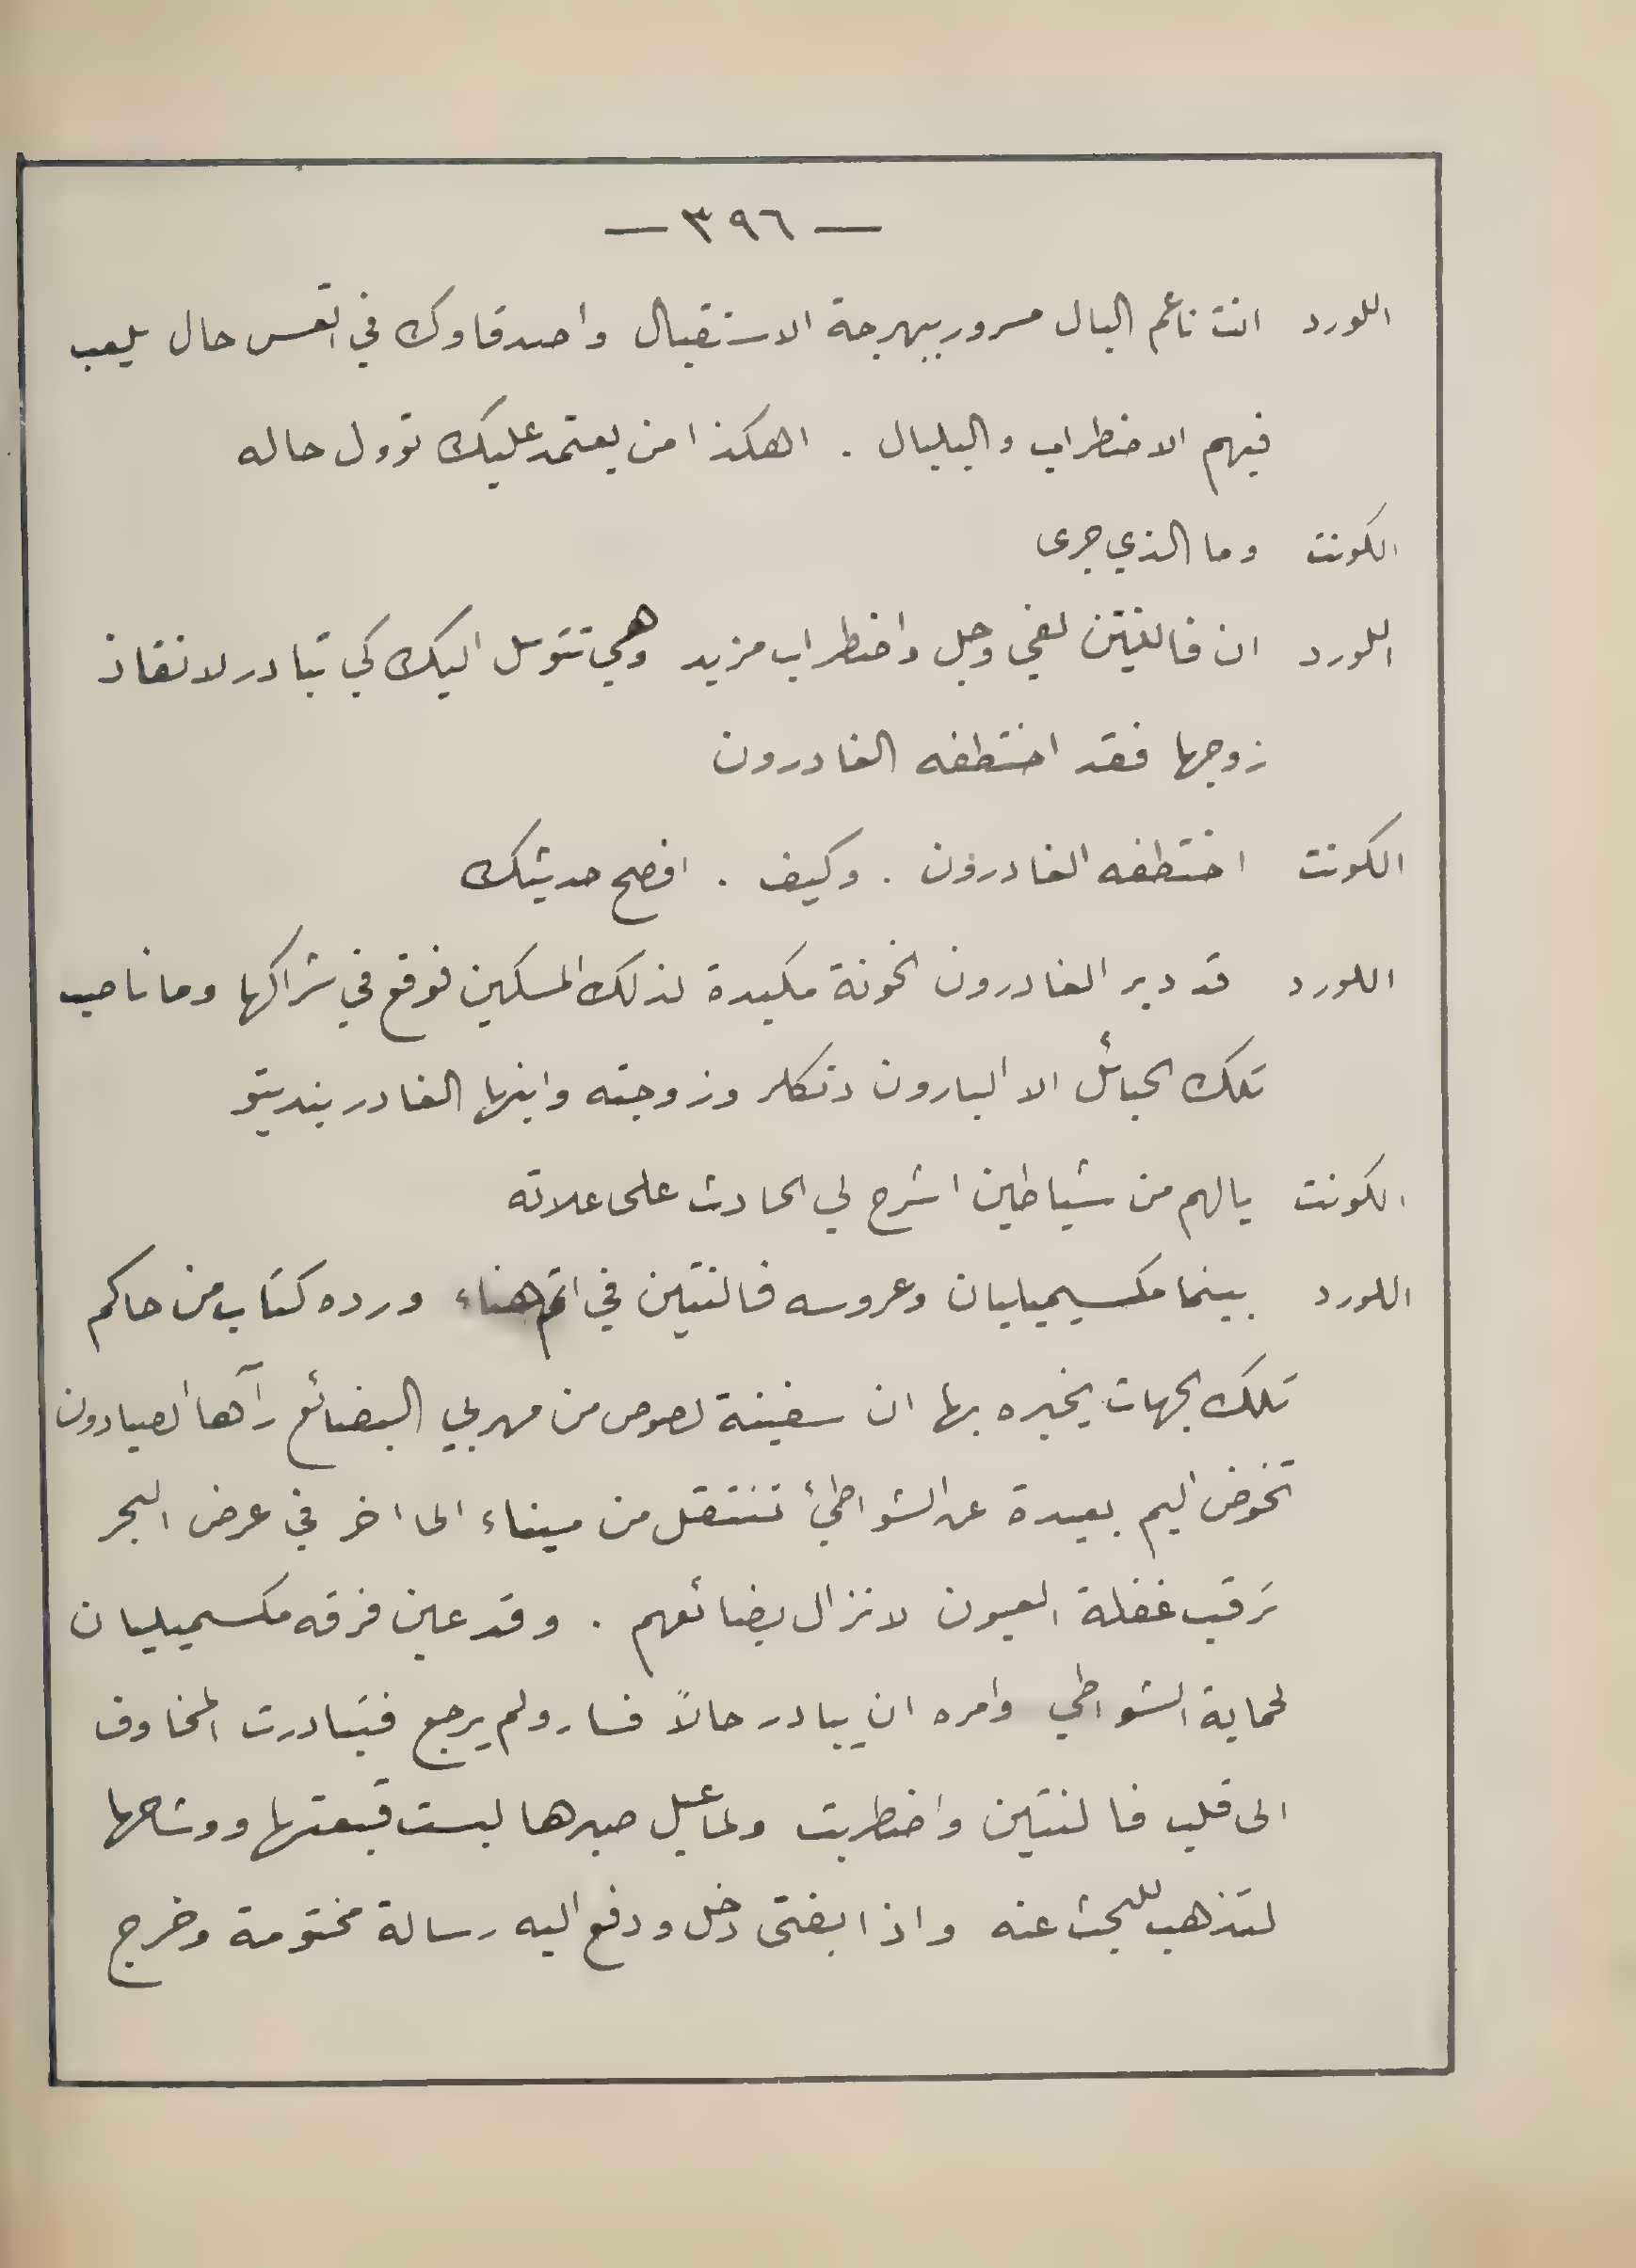 — ٣٩٦ —
اللورد انت ناعم البال مسرور ببهرجة الاستقبال واصدقاوك في اتعس حال يلعب
فيهم الاضطراب والبلبال . اهكذا من يعتمد عليك توول حاله
الكونت وما الذي جرى
اللورد ان فالنتين لفي وجل واضطراب مزيد وهي تتوسل اليك كي تبادر لانقاذ
زوجها فقد اختطفه الغادرون
الكونت اختطفه الغادرون . وكيف . افصح حديثك
اللورد قد دبر الغادرون الخونة مكيدة لذلك المسكين فوقع في شراكها وما ناصب
تلك الحبائل الا البارون دنكلر وزوجته وابنها الغادر بندیتو
الكونت يالهم من شياطين اشرح لي الحادث على علاته
اللورد بينما مكسيميليان وعروسه فالنتين في اتم هناء ورده كتاب من حاكم
تلك الجهات يخبره بها ان سفينة لصوص من مهربي البضائع رآها الصيادون
تخوض اليم بعيدة عن الشواطئ تنتقل من ميناء الى اخر في عرض البحر
ترقب غفلة العيون لانزال بضائعهم . وقد عين فرقه مكسيميليان
لحماية الشواطي وامره ان يبادر حالاً فسار ولم يرجع فتبادرت المخاوف
الى قلب فالنتين واضطربت ولما عيل صبرها لبست قبعتها ووشاحها
لتذهب للبحث عنه واذا بفتى دخل ودفع اليه رسالة مختومة وخرج